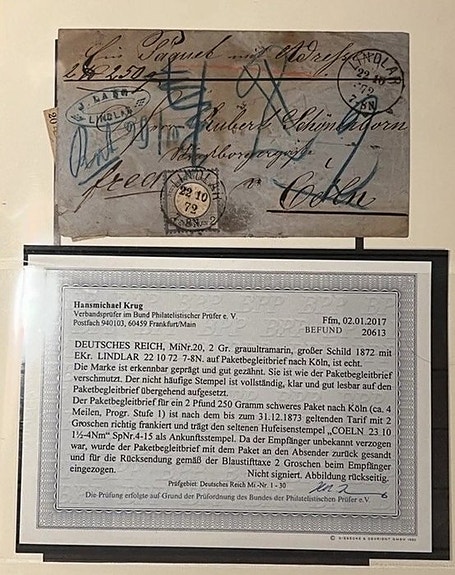 Ein Paquet mit Adresse
2 ℔ 250 g
LINDLAR
22 10
72
7-8N
J. LANG
LINDLAR
Herrn Hubert Schönenborn
franco
Cöln
LINDLAR
22 10
72
7-8N
Hansmichael Krug
Verbandsprüfer im Bund Philatelistischer Prüfer e. V.
Postfach 940103, 60459 Frankfurt/Main
Ffm, 02.01.2017
BEFUND 20613
DEUTSCHES REICH, MiNr.20, 2 Gr. grauultramarin, großer Schild 1872 mit
EKr. LINDLAR 22 10 72 7-8N. auf Paketbegleitbrief nach Köln, ist echt.
Die Marke ist erkennbar geprägt und gut gezähnt. Sie ist wie der Paketbegleitbrief
verschmutzt. Der nicht häufige Stempel ist vollständig, klar und gut lesbar auf den
Paketbegleitbrief übergehend aufgesetzt.
Der Paketbegleitbrief für ein 2 Pfund 250 Gramm schweres Paket nach Köln (ca. 4
Meilen, Progr. Stufe 1) ist nach dem bis zum 31.12.1873 geltenden Tarif mit 2
Groschen richtig frankiert und trägt den seltenen Hufeisenstempel „COELN 23 10
1½-4Nm" SpNr.4-15 als Ankunftsstempel. Da der Empfänger unbekannt verzogen
war, wurde der Paketbegleitbrief mit dem Paket an den Absender zurück gesandt
und für die Rücksendung gemäß der Blaustifttaxe 2 Groschen beim Empfänger
eingezogen.
Nicht signiert. Abbildung rückseitig.
Prüfgebiet: Deutsches Reich Mi.-Nr. 1 - 30
Die Prüfung erfolgte auf Grund der Prüfordnung des Bundes der Philatelistischen Prüfer e.V.
6
© GIESECKE & DEVRIENT GMBH 1992